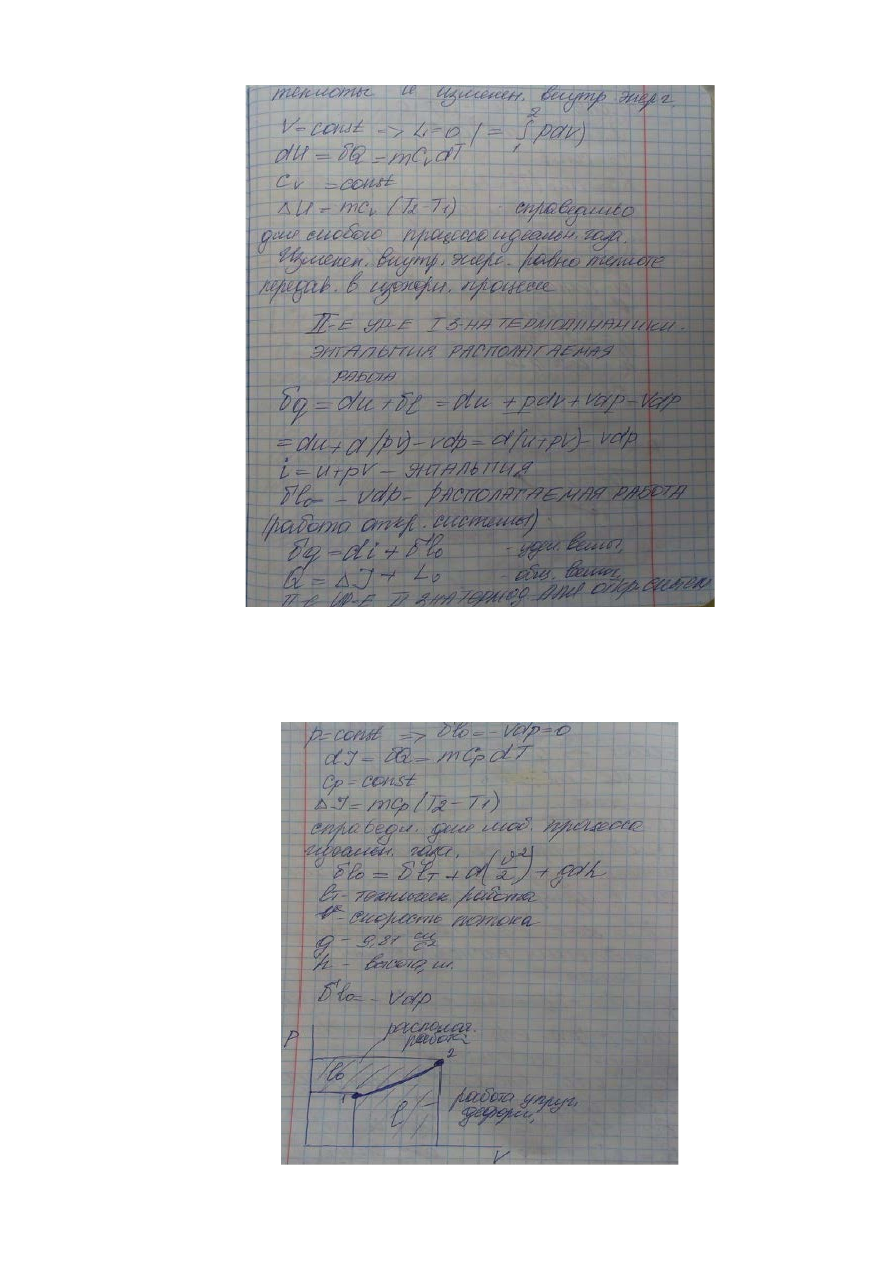 теплоты и изменен. внутр энерг.
V=const => L=0 (= ∫₁² pdv)
dU = δQ = mCᵥdT
Cᵥ = const
ΔU = mCᵥ (T₂-T₁) - справедливо
для любого процесса идеальн. газа.
Изменен. внутр. энерг. равно теплоте
передав. в изохорн. процессе
II-Е УР-Е I З-НА ТЕРМОДИНАМИКИ.
ЭНТАЛЬПИЯ РАСПОЛАГАЕМАЯ
РАБОТА
δq = du + δl = du + pdv + vdp - vdp
= du + d(pv) - vdp = d(u+pv) - vdp
i = u + pv - ЭНТАЛЬПИЯ
δl₀ = -vdp - РАСПОЛАГАЕМАЯ РАБОТА
(работа откр. системы)
δq = di + δl₀ - удел. велич.
Q = ΔI + L₀ - общ. велич.
II-Е УР-Е II З-НА ТЕРМОД ДЛЯ ОТКР. СИСТЕМ
p=const => δl₀ = -vdp = 0
dI = δQ = mCp dT
Cp = const
ΔI = mCp (T₂ - T₁)
справедл. для люб. процесса
идеальн. газа.
δl₀ = δlт + d(v²/2) + gdh
lт - техническ работа
v - скорость потока
g - 9,81 м/с²
h - высота, м.
δl₀ = - vdp
P
располаг.
работа
2
l₀
1
l
работа упруг.
деформ.
V